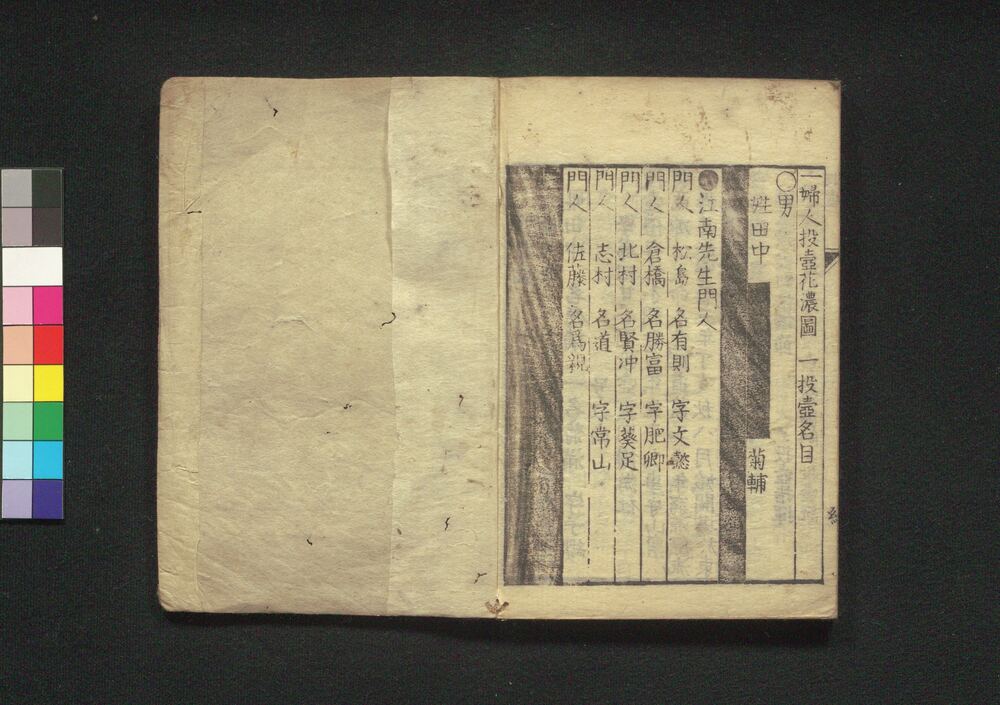 一婦人投壺花濃圖　一投壺名目
○男
姓田中　菊輔
●江南先生門人
門人　松島　名有則　字文懿
門人　倉橋　名勝富　字肥卿
門人　北村　名賢冲　字葵足
門人　志村　名道　字常山
門人　佐藤　名為親